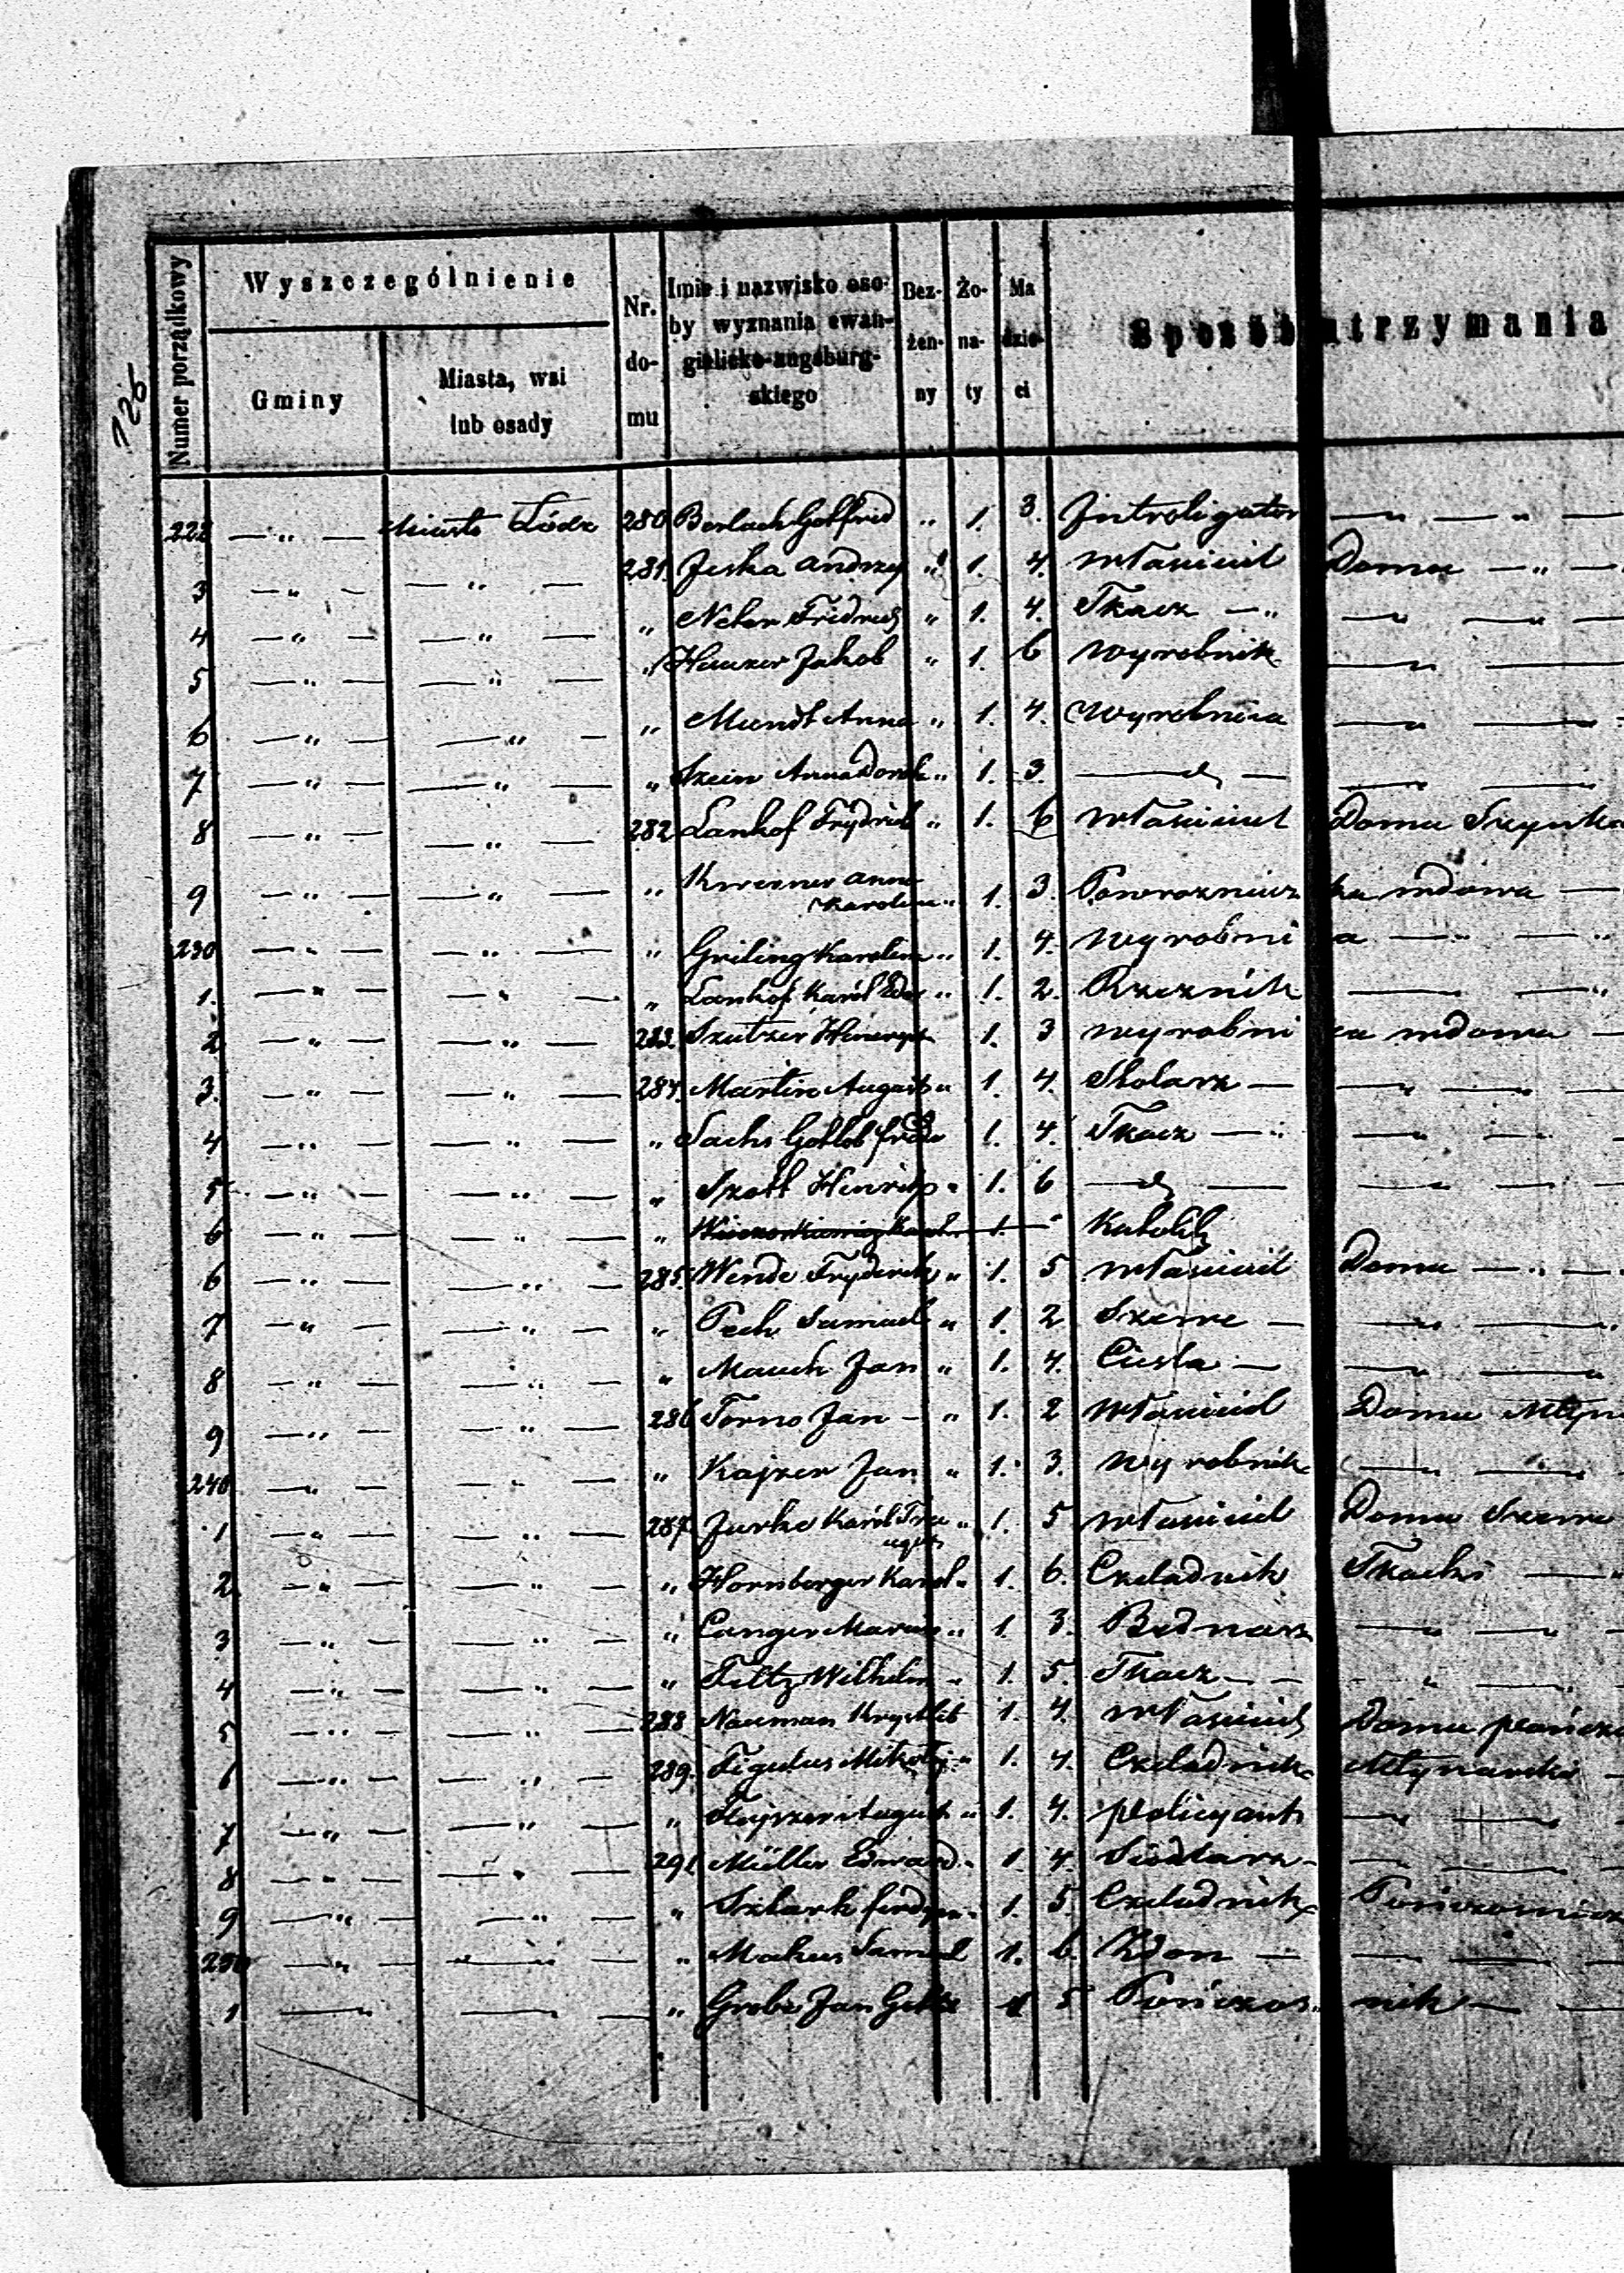 126
Numer porządkowy
Wyszczególnienie
Gminy
Miasta, wsi lub osady
Nr. domu
Imie i nazwisko osoby wyznania ewangielicko-augsburgskiego
Bezżenny
Żonaty
Ma dzieci
Sposób utrzymania
222 — „ — Miasto Łódz 280 Berlach Gotfried „ 1. 3. Introligator — „ —
3 — „ — — „ — 281. Jeska Andrzej „ 1. 4. właściciel Domu — „ —
4 — „ — — „ — „ Neher Fridrich „ 1. 4. Tkacz — „
5 — „ — — „ — „ Hauzer Jakob „ 1. 6 wyrobnik —
6 — „ — — „ — „ Mundt Anna „ 1. 4. Wyrobnica —
7 — „ — — „ — „ Szein Anna Dorot „ 1. 3. — d —
8 — „ — — „ — 282 Lankof Frydrich „ 1. 6 właściciel Domu Szynka
9 — „ — — „ — „ Kwerner Anna Karolina „ 1. 3. Powroznicz ka wdowa —
230 — „ — — „ — „ Griling Karolina „ 1. 4. wyrobni a — „
1. — „ — — „ — „ Lankof Karól Edw „ 1. 2. Rzeznik —
2 — „ — — „ — 283. Szutzer Heneryk 1. 3 wyrobni ca wdowa —
3. — „ — — „ — 284. Martin August „ 1. 4. Stolarz —
4 — „ — — „ — „ Sachs Gotlob 1. 4. Tkacz — „
5 — „ — — „ — „ Szott Henrich „ 1. 6 — d —
6 — „ — — „ — „ 1. Katolik
6 — „ — — „ — 285. Wende Fryderik „ 1. 5 właściciel Domu — „ —
7 — „ — — „ — „ Pech Samuel „ 1. 2 Szewc —
8 — „ — — „ — „ Mauch Jan „ 1. 4. Ciesla —
9 — „ — — „ — 286 Torno Jan — „ 1. 2 właściciel Domu Młyn
240 — „ — — „ — „ Kajzer Jan „ 1. 3. wyrobnik —
1 — „ — — „ — 287 Jurke Karól Traugot „ 1. 5 właściciel Domu Szewc
2 — „ — — „ — „ Hornberger Karol „ 1. 6. Czeladnik Tkacki —
3 — „ — — „ — „ Langer Marcin „ 1. 3. Bednarz —
4 — „ — — „ — „ Feltz Wilhelm „ 1. 5. Tkacz —
5 — „ — — „ — 288 Nauman Krystlib 1. 4. właściciel Domu pończ
6 — „ — — „ — 289. Figulus Mikołaj „ 1. 4. Czeladnik Młynarski —
7 — „ — — „ — „ August „ 1. 4. policyant —
8 — „ — — „ — 291 Müller Edward „ 1. 4. Siodlarz —
9 — „ — — „ — „ Szlark Ferdyn „ 1. 5. Czeladnik Pończosnicz
250 — „ — — „ — „ Makus Samuel 1. 6. Zdon —
1 — „ — „ — „ Grobe Jan Gotl 1 5 Pończos„ nik —